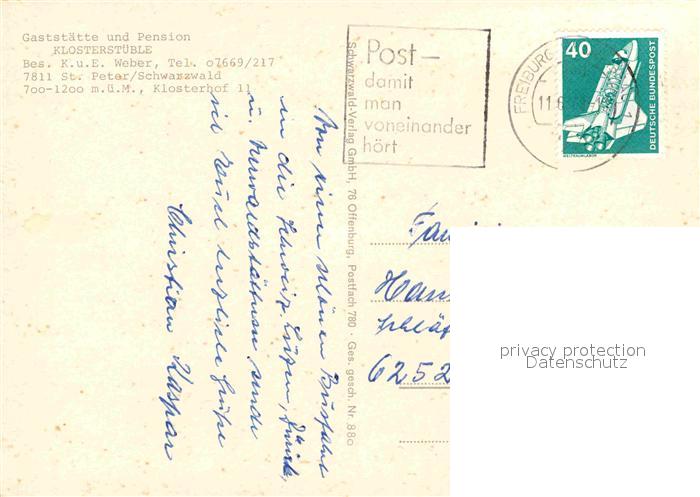 Gaststätte und Pension
KLOSTERSTÜBLE
Bes. K.u.E. Weber, Tel. 07669/217
7811 St. Peter/Schwarzwald
700-1200 m.ü.M., Klosterhof 11
Post –
damit
man
voneinander
hört
FREIBURG
11.
1
40
DEUTSCHE BUNDESPOST
WELTRAUMLABOR
Schwarzwald-Verlag GmbH, 76 Offenburg, Postfach 780 · Ges. gesch. Nr. 880
Von einer schönen Busfahrt
in die Schweiz, Luzern, Zürich,
u. Vierwaldstättersee sende
herzliche Grüße
Christian Kaspar
Fam
Han
6252
privacy protection
Datenschutz